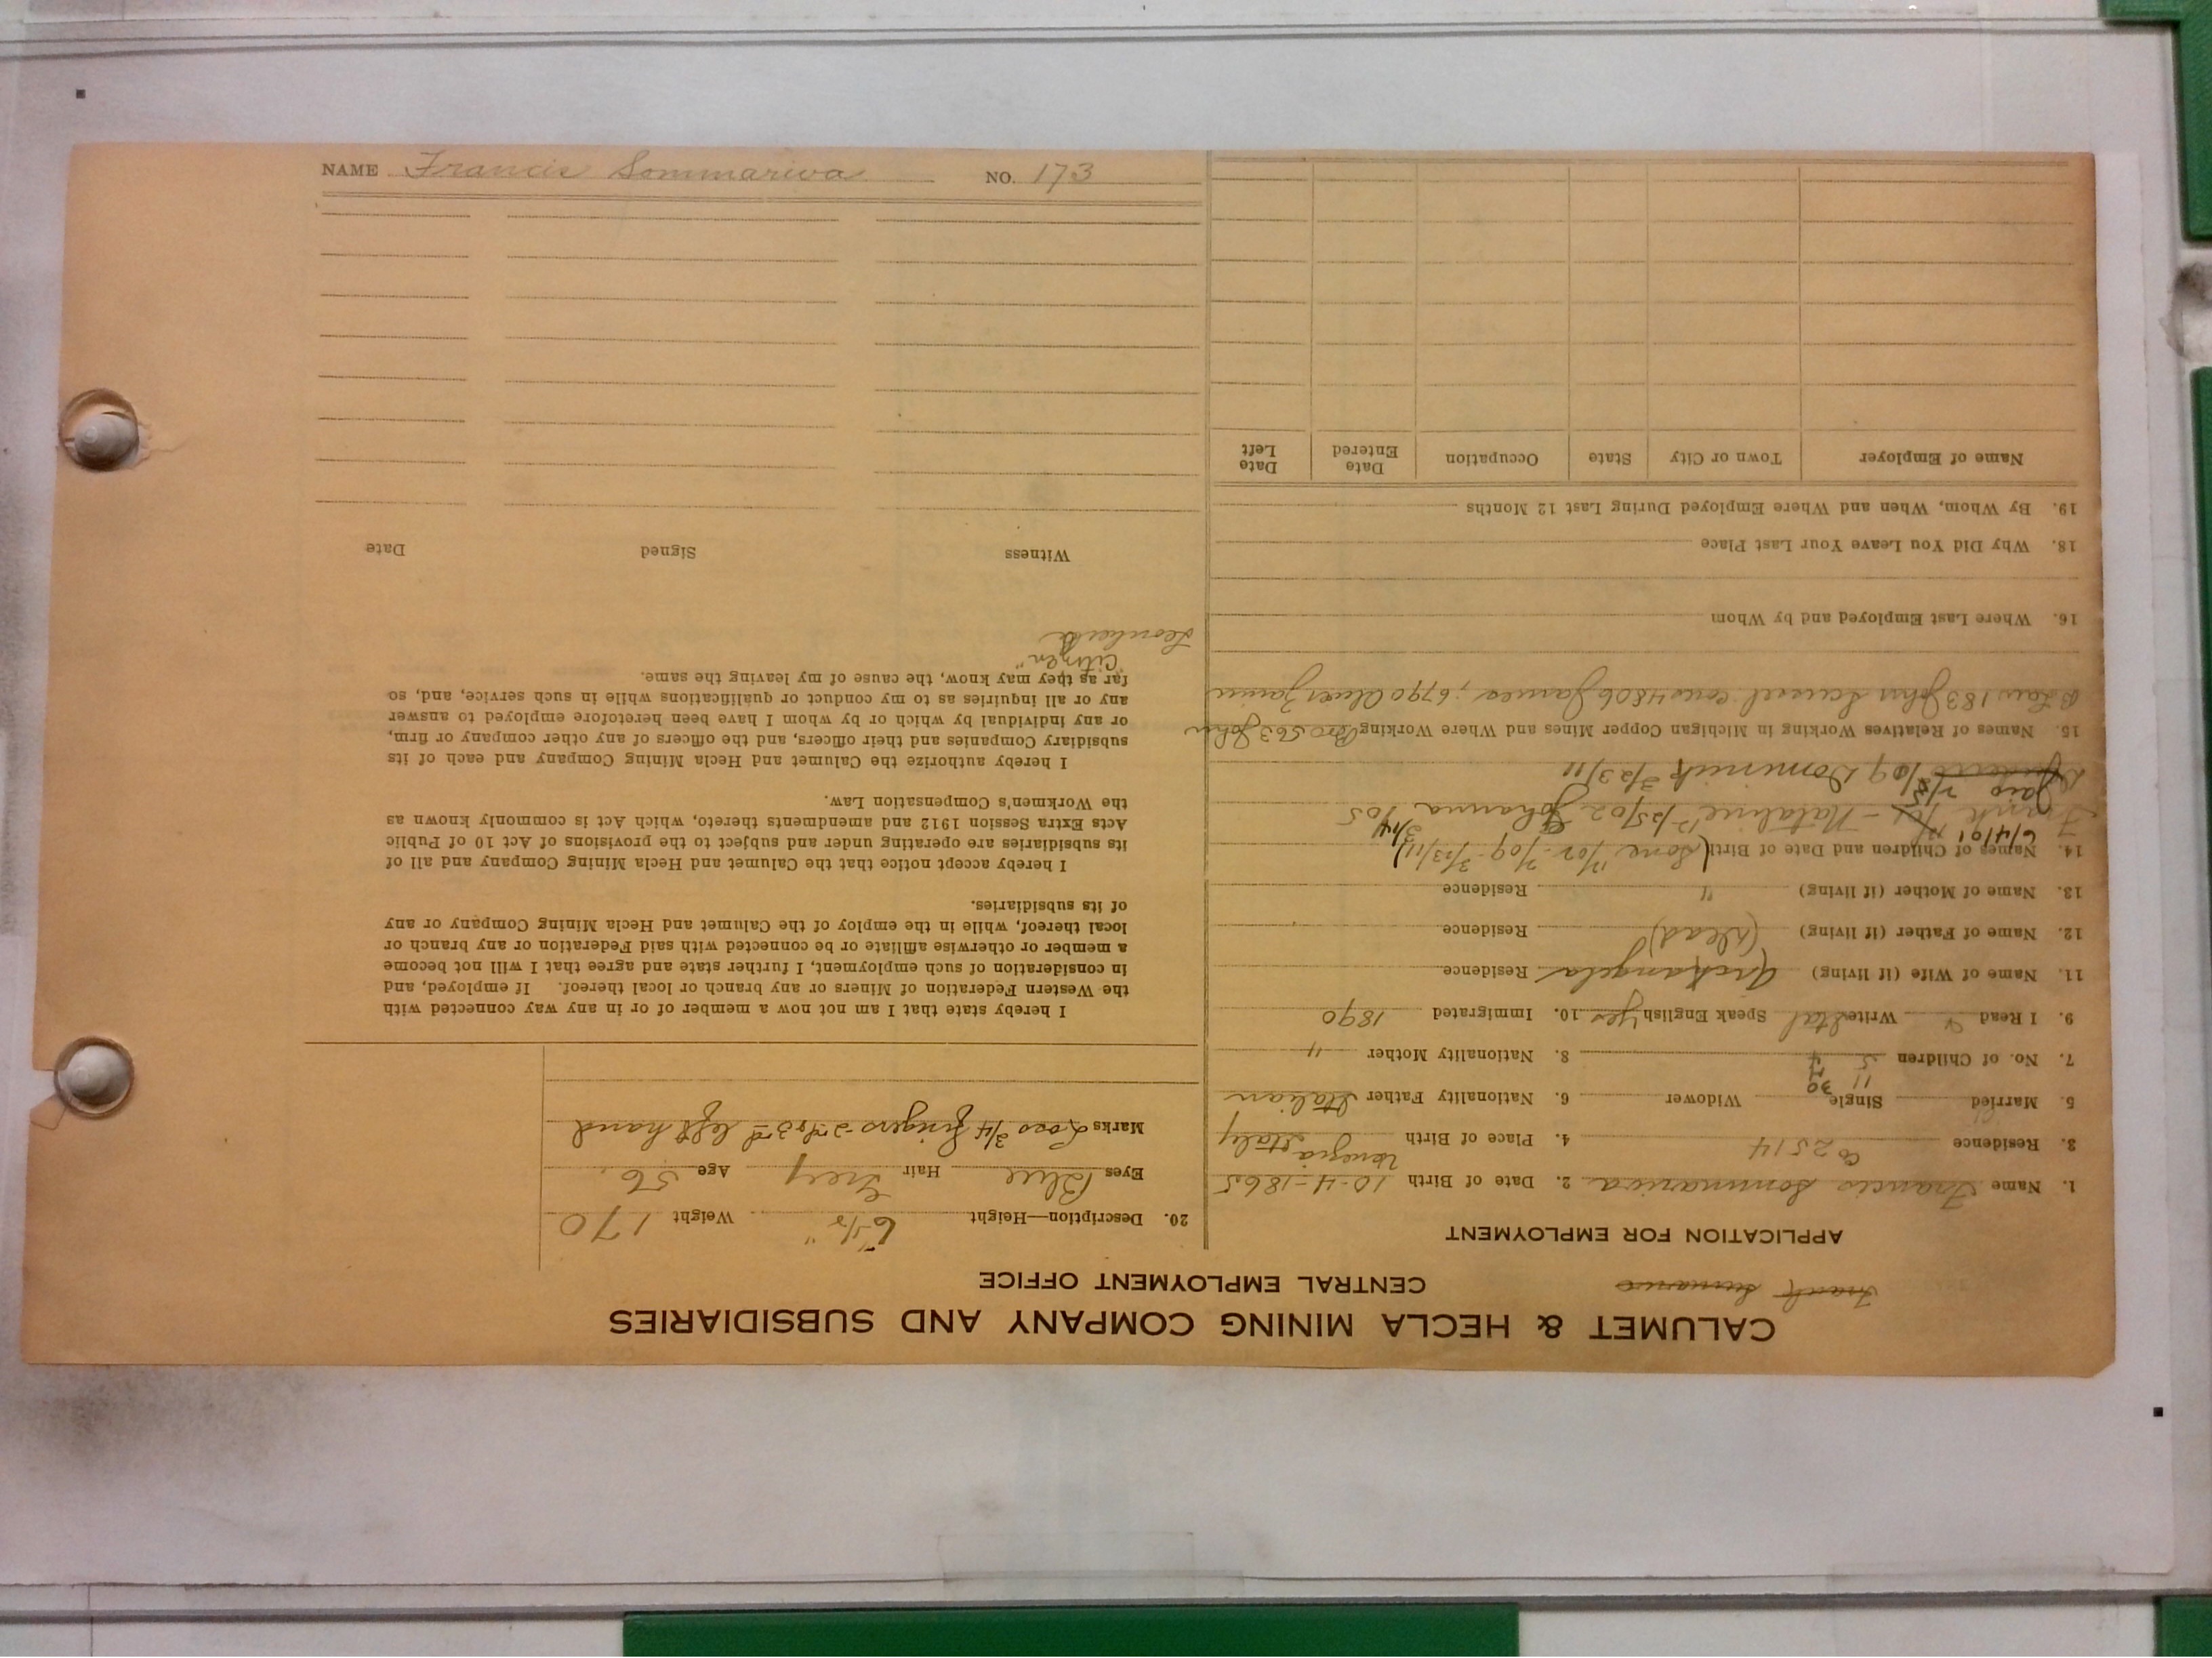 CALUMET & HECLA MINING COMPANY AND SUBSIDIARIES
CENTRAL EMPLOYMENT OFFICE
Frank
APPLICATION FOR EMPLOYMENT
1. Name Francis Sommariva 2. Date of Birth 10-4-1865
3. Residence Co 2514 4. Place of Birth Venezia Italy
5. Married Single Widower 6. Nationality Father Italian
11 30
7. No. of Children 5 4 8. Nationality Mother "
9. I Read Write Ital Speak English yes 10. Immigrated 1890
11. Name of Wife (if living) Archangela Residence
12. Name of Father (if living) (dead) Residence
13. Name of Mother (if living) " Residence
14. Names of Children and Date of Birth
6/4/01
Frank Nataline 12/25/02 Johanna 3/14/05
Dominick 3/23/11
15. Names of Relatives Working in Michigan Copper Mines and Where Working Bro 563 John
B Law 183 John 4806 James, 6790
16. Where Last Employed and by Whom
18. Why Did You Leave Your Last Place
19. By Whom, When and Where Employed During Last 12 Months
Name of Employer Town or City State Occupation Date Entered Date Left
20. Description—Height 6' 1/2" Weight 170
Eyes Blue Hair Grey Age 56
Marks Loss 3/4 fingers 2nd & 3rd left hand
I hereby state that I am not now a member of or in any way connected with
the Western Federation of Miners or any branch or local thereof. If employed, and
in consideration of such employment, I further state and agree that I will not become
a member or otherwise affiliate or be connected with said Federation or any branch or
local thereof, while in the employ of the Calumet and Hecla Mining Company or any
of its subsidiaries.
I hereby accept notice that the Calumet and Hecla Mining Company and all of
its subsidiaries are operating under and subject to the provisions of Act 10 of Public
Acts Extra Session 1912 and amendments thereto, which Act is commonly known as
the Workmen's Compensation Law.
I hereby authorize the Calumet and Hecla Mining Company and each of its
subsidiary Companies and their officers, and the officers of any other company or firm,
or any individual by which or by whom I have been heretofore employed to answer
any or all inquiries as to my conduct or qualifications while in such service, and, so
far as they may know, the cause of my leaving the same.
Citizen"
Witness Signed Date
NAME Francis Sommariva NO. 173